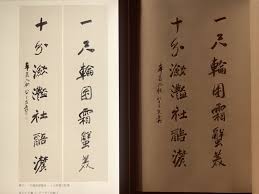 一尺輪囷霜蟹美
十分瀲灩社醅濃
一尺輪囷霜蟹美
十分瀲灩社醅濃